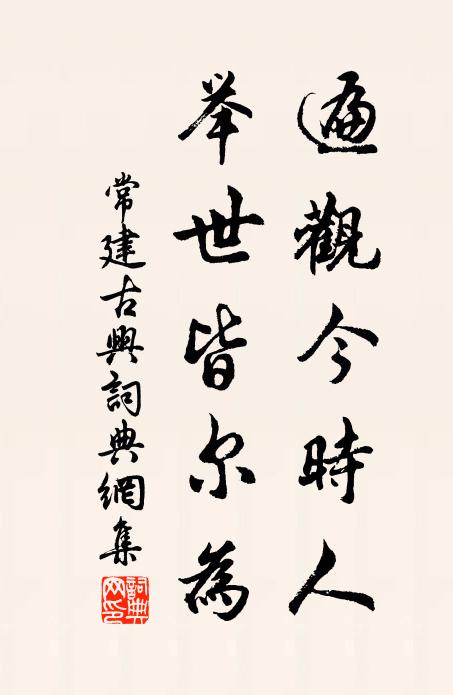 遍觀今時人
举世皆尔為
常建古興詞典網集
詞典网印